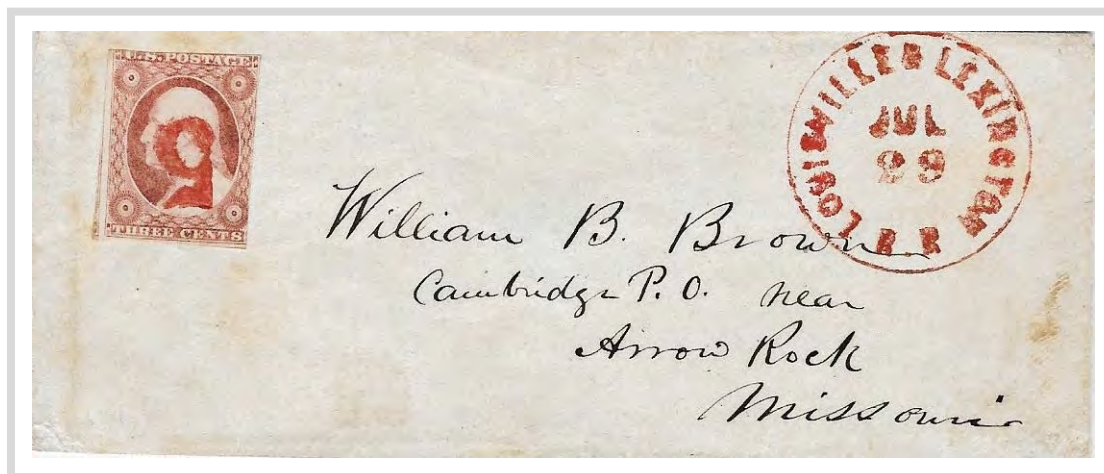 U.S. POSTAGE
THREE CENTS
LOUISVILLE & LEXINGTON R.R
JUL
29
William B. Brown
Cambridge P.O. near
Arrow Rock
Missouri